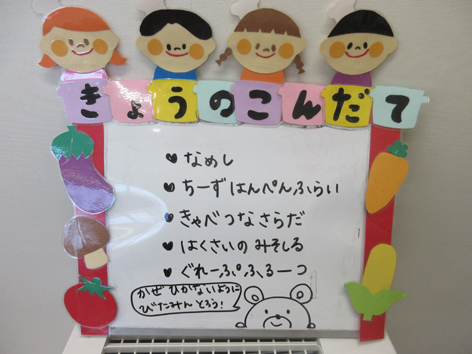 きょうのこんだて
♥ なめし
♥ ちーずはんぺんふらい
♥ きゃべつなさらだ
♥ はくさいのみそしる
♥ ぐれーぷふるーつ
かぜひかないように
びたみんとろう!